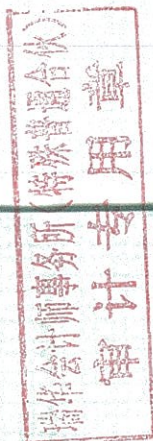 瑞华会计师事务所(特殊普通合伙)
审计专用章